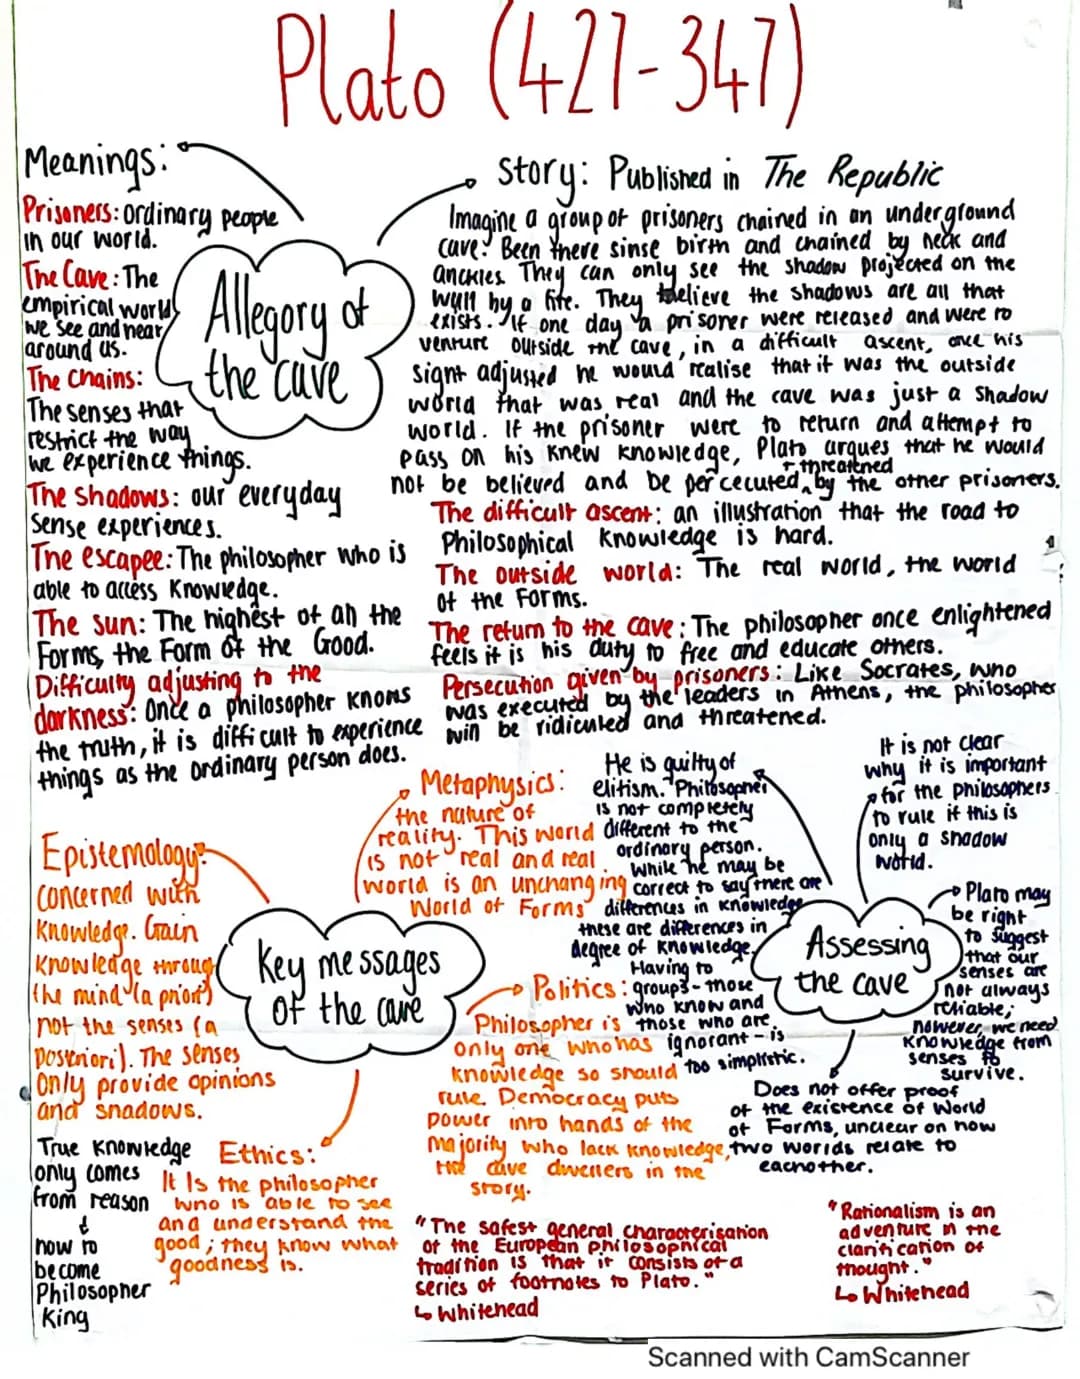 Plato (427-347)
Meanings:
Prisoners: ordinary people
in our world.
The Cave: The
empirical world
we see and hear
around us.
The Chains:
The senses that
restrict the way
we experience things.
The Shadows: our everyday
Sense experiences.
The escapee: The philosopher who is
able to access Knowledge.
The sun: The highest of all the
Forms, the Form of the Good.
Difficulty adjusting to the
darkness: Once a philosopher knows
the truth, it is difficult to experience
things as the ordinary person does.
Allegory of
the cave
Story: Published in The Republic
Imagine a group of prisoners chained in an underground
cave. Been there sinse birth and chained by neck and
anckles They can only see the shadow projected on the
wall by a fire. They believe the shadows are all that
exists. If one day a prisoner were released and were to
venture outside the cave, in a difficult ascent, once his
sight adjusted he would realise that it was the outside
world that was real and the cave was just a Shadow
world. If the prisoner were to return and attempt to
pass on his knew knowledge, Plato argues that he would
+ threatened
not be believed and be percecuted by the other prisoners.
The difficult ascent: an illustration that the road to
Philosophical knowledge is hard.
The outside world: The real world, the world
of the Forms.
The return to the cave: The philosopher once enlightened
feels it is his duty to free and educate others.
Persecution given by prisoners: Like Socrates, who
was executed by the leaders in Athens, the philosopher
will be ridiculed and threatened.
Key messages
of the cave
Epistemology:
concerned with
Knowledge. Gain
Knowledge through
the mind (a priori)
not the senses (a
posteriori). The senses
only provide opinions
and shadows.
True Knowledge
only comes
from reason
+
how to
become
Philosopher
King
Ethics:
It Is the philosopher
who is able to see
and understand the
good; they know what
goodness is.
Metaphysics:
the nature of
reality. This world
is not real and real
world is an unchanging
World of Forms
Politics:
Philosopher is
only one who has
knowledge so should
rule. Democracy puts
power into hands of the
majority who lack knowledge,
the cave dwellers in the
story.
Assessing
the cave
He is guilty of
elitism. Philosopher
is not completely
different to the
ordinary person.
While he may be
correct to say there are
differences in knowledge
these are differences in
degree of knowledge.
Having to
groups - those
who know and
those who are
ignorant - is
too simplistic.
It is not clear
why it is important
for the philosophers
to rule if this is
only a shadow
world.
Plato may
be right
to suggest
that our
senses are
not always
reliable;
however, we need
Knowledge from
senses to
survive.
Does not offer proof
of the existence of World
of Forms, unclear on how
two worlds relate to
eachother.
"The safest general characterisation
of the European philosophical
tradition is that it consists of a
series of footnotes to Plato."
↳ Whitehead
"Rationalism is an
adventure in the
clarification of
thought."
↳ Whitehead
Scanned with CamScanner